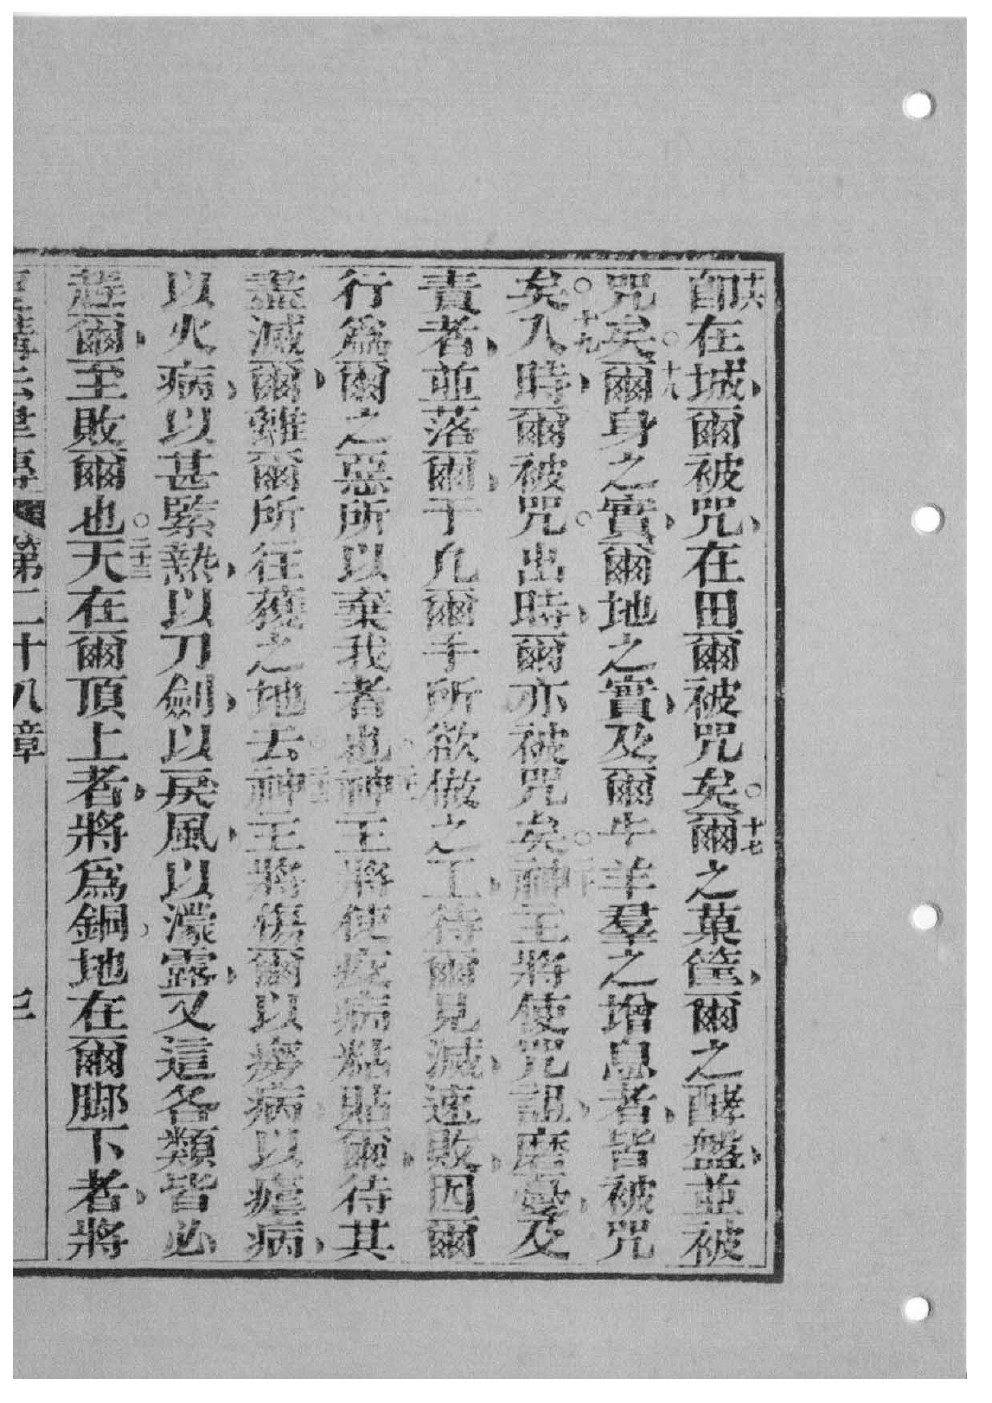 十六即在城爾被咒在田爾被咒矣○十七爾之菓筐爾之酵盤並被
咒矣○十八爾身之實爾地之實及爾牛羊羣之增息者皆被咒
矣○十九入時爾被咒○出時爾亦被咒矣○二十神主將使咒詛磨憂及
責者並落爾于凡爾手所欲做之工待爾見滅速敗因爾
行爲爾之惡所以棄我者也○神主將使疫病粘貼爾待其
盡滅爾離爾所往獲之地去○神主將傷爾以癆病以瘧病
以火病以甚緊熱以刀劍以戾風以濛露又這各類皆必
趕爾至敗爾也○二十三天在爾頂上者將爲銅地在爾脚下者將
第二十八章 七